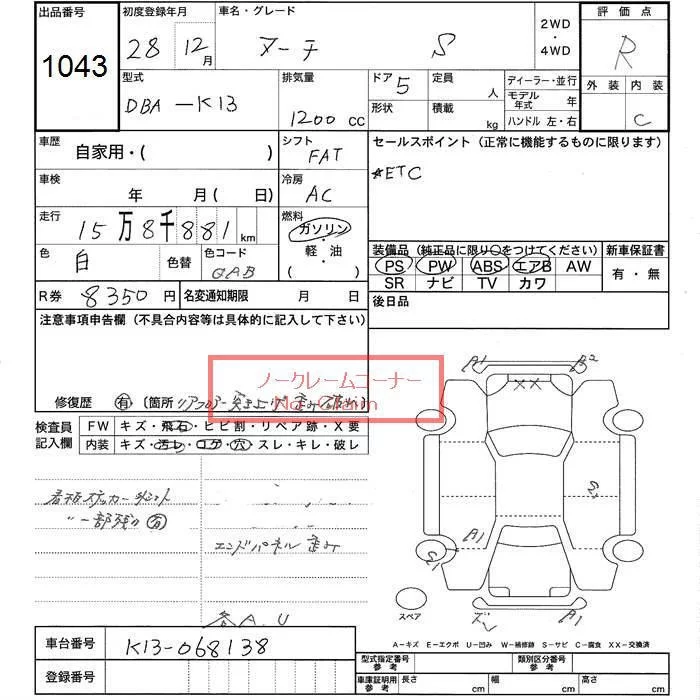 出品番号 初度登録年月 車名・グレード 2WD・4WD 評価点
1043 28 12月 マーチ S R
型式 排気量 ドア 5 定員 人 ディーラー・並行 外装 内装
DBA-K13 1200 CC 形状 積載 kg モデル年式 年 C
ハンドル 左・右
車歴 自家用・( ) シフト FAT セールスポイント(正常に機能するものに限ります)
車検 年 月( 日) 冷房 AC *ETC
走行 15万8千881km 燃料 ガソリン・軽・油( )
色 白 色替 色コード QAB
装備品(純正品に限り○をつけてください) 新車保証書
PS PW ABS エアB AW 有・無
SR ナビ TV カワ
R券 8350円 名変通知期限 月 日 後日品
注意事項申告欄(不具合内容等は具体的に記入して下さい)
ノークレームコーナー
No Claim
修復歴 有 〔箇所 リアフロアー
検査員記入欄 FW キズ・飛石・ヒビ割・リペア跡・X要
内装 キズ・汚レ・コゲ・穴・スレ・キレ・破レ
看板ステッカー
〃 一部残り 有
エンドパネル 歪み
各A.U
A1 A2
XX
A1
A1
スペア
A-キズ E-エクボ U-凹み W-補修跡 S-サビ C-腐食 XX-交換済
車台番号 K13-068138
登録番号
型式指定番号 参考 類別区分番号 参考
車庫証明用 参考 長さ cm 幅 cm 高さ cm